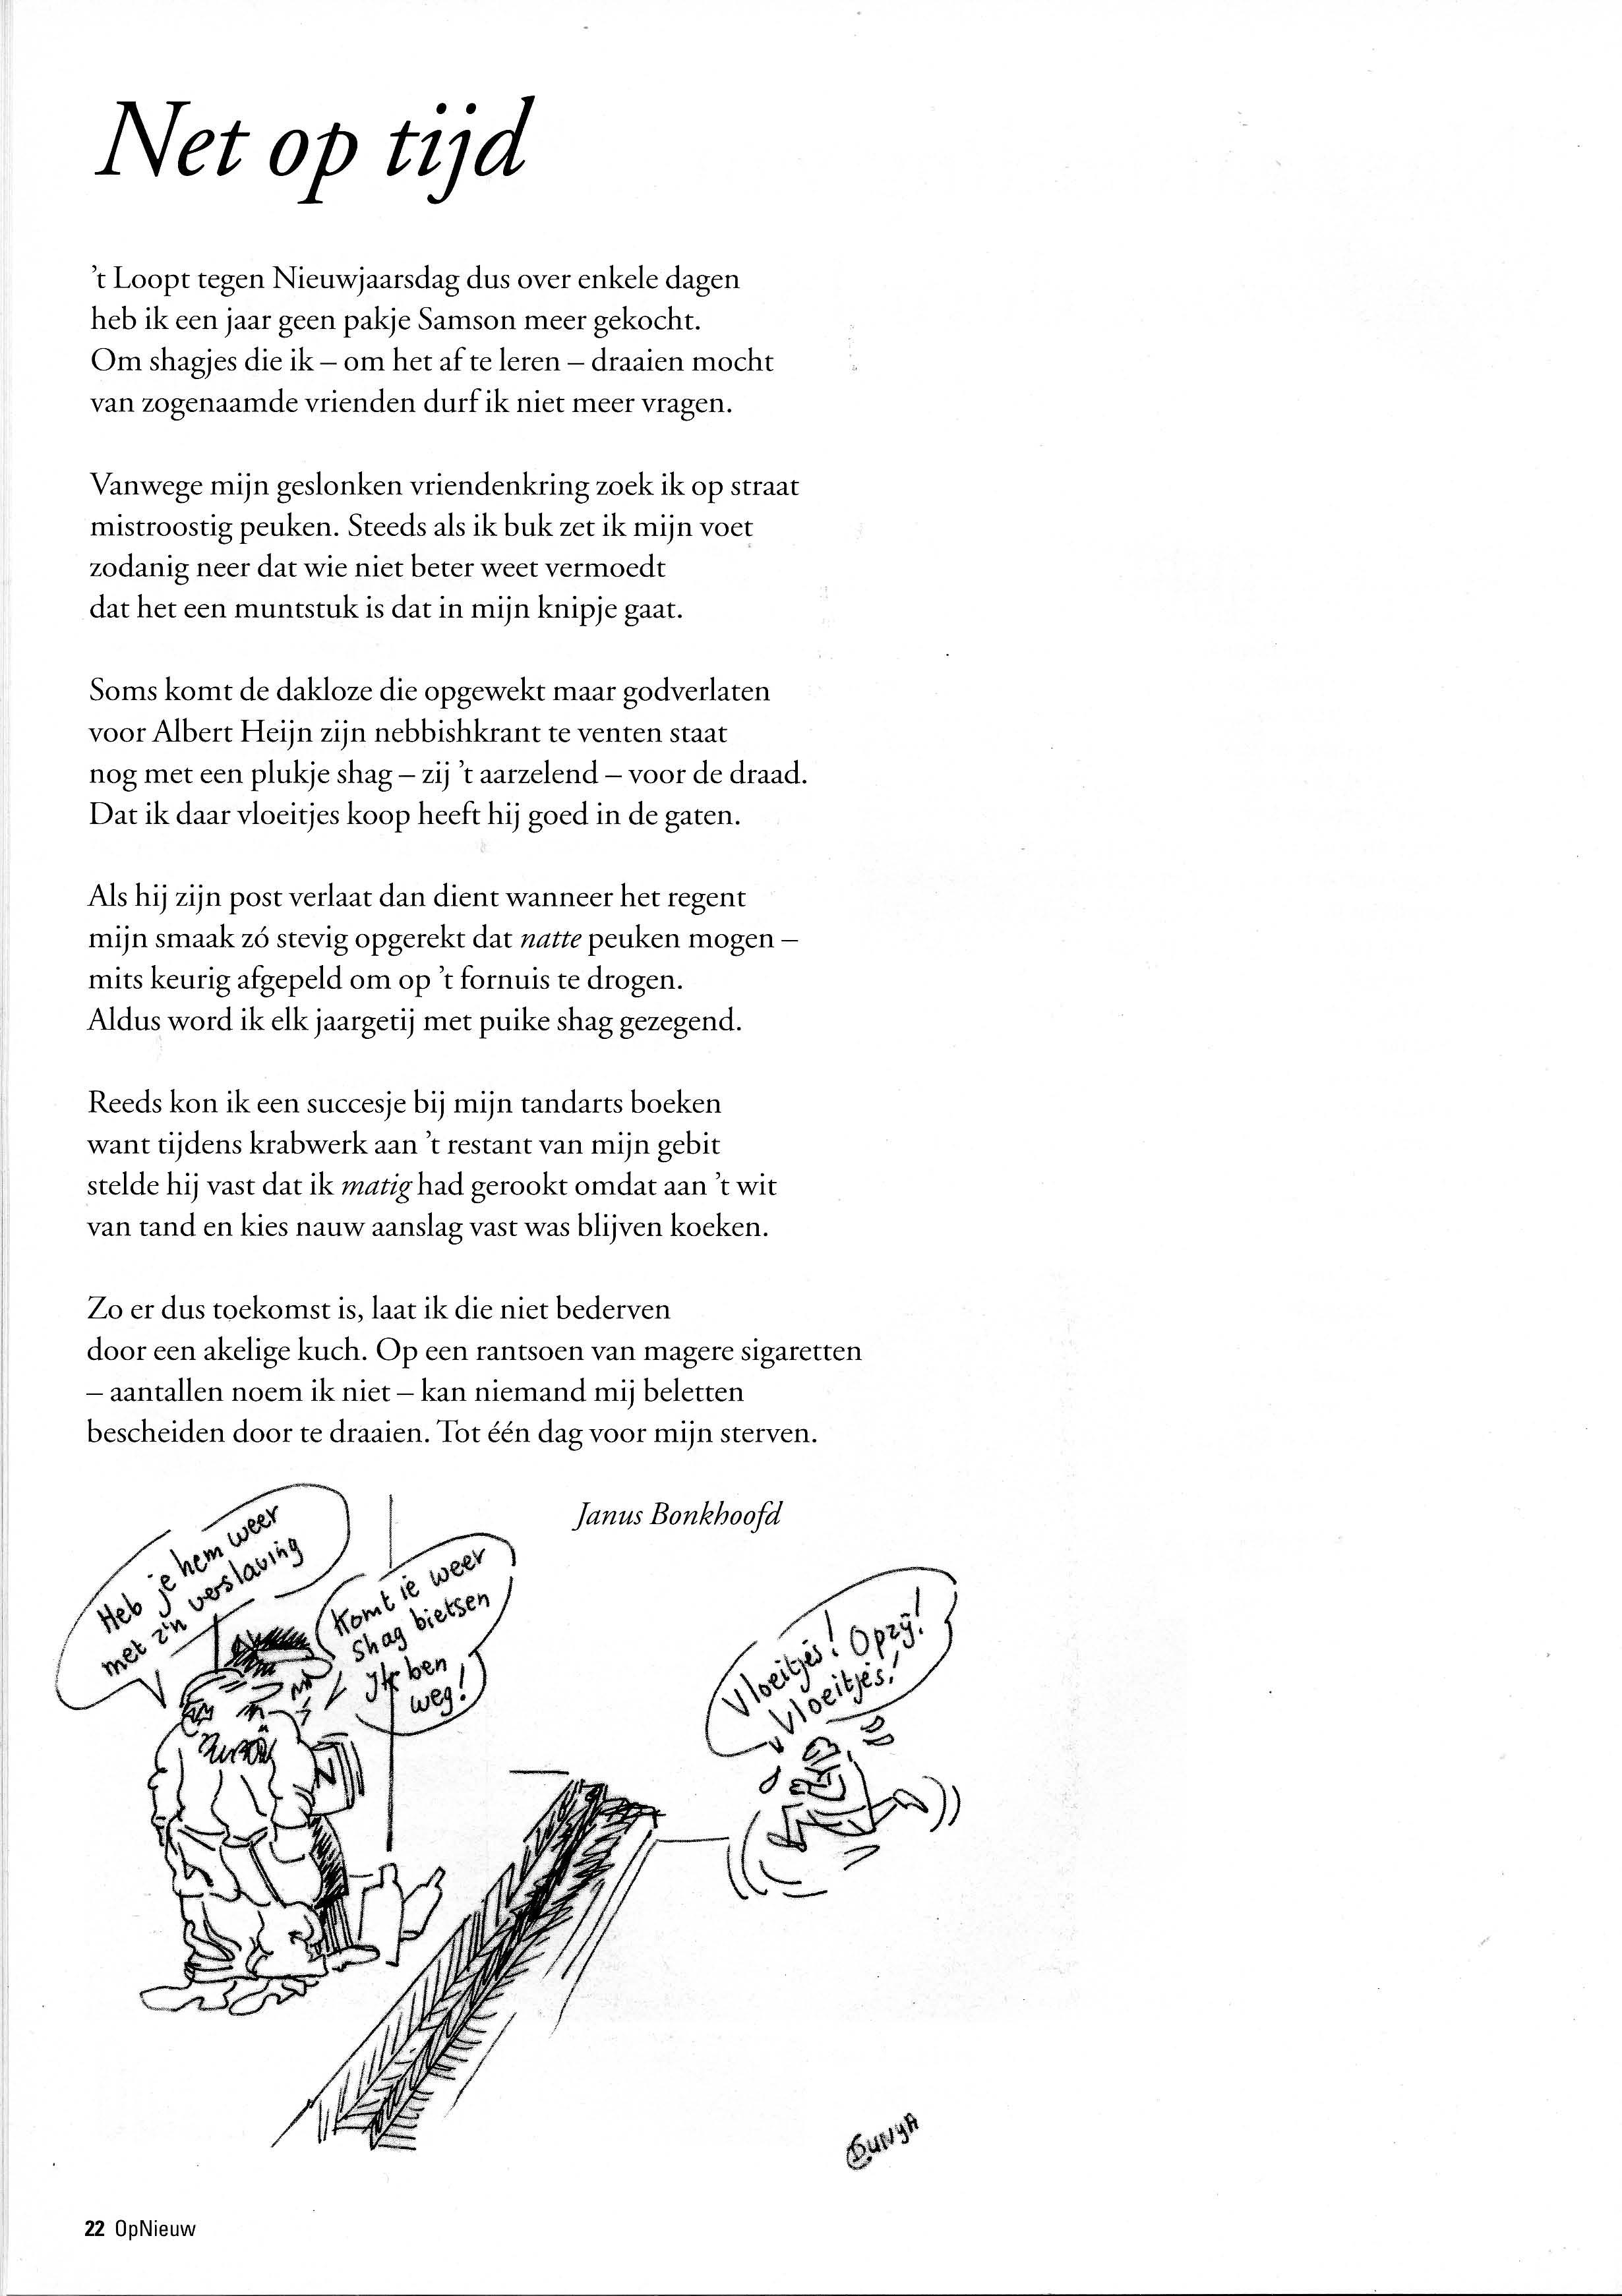 Net op tijd
’t Loopt tegen Nieuwjaarsdag dus over enkele dagen
heb ik een jaar geen pakje Samson meer gekocht.
Om shagjes die ik – om het af te leren – draaien mocht
van zogenaamde vrienden durf ik niet meer vragen.
Vanwege mijn geslonken vriendenkring zoek ik op straat
mistroostig peuken. Steeds als ik buk zet ik mijn voet
zodanig neer dat wie niet beter weet vermoedt
dat het een muntstuk is dat in mijn knipje gaat.
Soms komt de dakloze die opgewekt maar godverlaten
voor Albert Heijn zijn nebbishkrant te venten staat
nog met een plukje shag – zij ’t aarzelend – voor de draad.
Dat ik daar vloeitjes koop heeft hij goed in de gaten.
Als hij zijn post verlaat dan dient wanneer het regent
mijn smaak zó stevig opgerekt dat natte peuken mogen –
mits keurig afgepeld om op ’t fornuis te drogen.
Aldus word ik elk jaargetij met puike shag gezegend.
Reeds kon ik een succesje bij mijn tandarts boeken
want tijdens krabwerk aan ’t restant van mijn gebit
stelde hij vast dat ik matig had gerookt omdat aan ’t wit
van tand en kies nauw aanslag vast was blijven koeken.
Zo er dus toekomst is, laat ik die niet bederven
door een akelige kuch. Op een rantsoen van magere sigaretten
– aantallen noem ik niet – kan niemand mij beletten
bescheiden door te draaien. Tot één dag voor mijn sterven.
Janus Bonkhoofd
Heb je hem weer
met z'n verslaving
Komt ie weer
shag bietsen
Ik ben
weg!
Vloeitjes! Opzij!
Vloeitjes!
DUNYA
22 OpNieuw